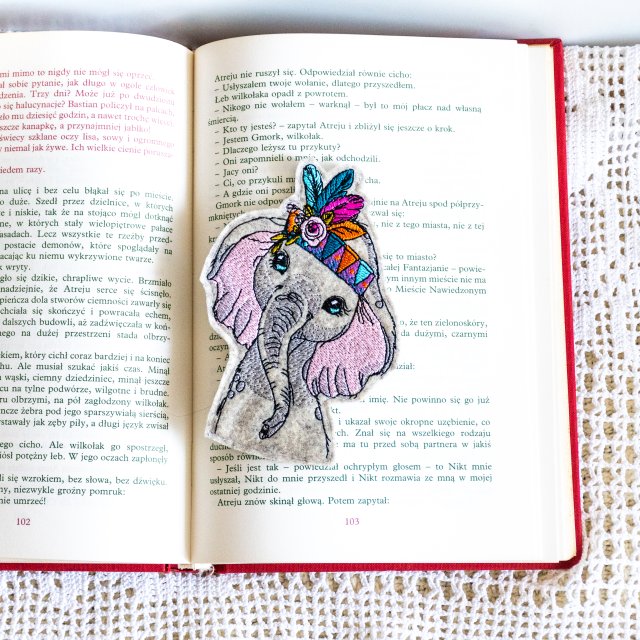 mi mimo to nigdy nie mógł się oprzeć
ał sobie pytanie, jak długo w ogóle człowiek
dzenia. Trzy dni? Może już po dwudziestu
o się halucynacje? Bastian policzył na palcach
zło mu dziesięć godzin, a nawet trochę więcej
szcze kanapkę, a przynajmniej jabłko!
świecy szklane oczy lisa, sowy i ogromnego
y niemal jak żywe. Ich wielkie cienie
iedem razy.
na ulicę i bez celu błąkał się po mieście.
o duże. Szedł przez dzielnice, w których
e i niskie, tak że na stojąco mógł dotknąć
, w których stały wielopiętrowe pałace
asadach. Lecz wszystkie te rzeźby przed-
postacie demonów, które spoglądały na
acając ku niemu wykrzywione twarze.
k wryty.
gło się dzikie, chrapliwe wycie. Brzmiało
nadziejnie, że Atreju serce się ścisnęło.
pieńcza dola stworów ciemności zawarły się
chciała się skończyć i powracała echem,
dalszych budowli, aż zadźwięczała w koń-
po dalszej przestrzeni stada olbrzy-
kiem, który cichł coraz bardziej i na koniec
chu. Ale musiał szukać jakiś czas. Minął
wąski, ciemny dziedziniec, minął jeszcze
cu na tylne podwórze, wilgotne i brudne.
uru olbrzymi, na pół zagłodzony wilkołak.
ńcze żebra pod jego sparszywiałą sierścią,
tawały jak zęby piły, a długi język zwisał
ego cicho. Ale wilkołak go spostrzegł,
iósł potężny łeb. W jego oczach zapłonęły
li się wzrokiem, bez słowa, bez dźwięku.
ny, niezwykle groźny pomruk:
e umrzeć!
102
Atreju nie ruszył się. Odpowiedział równie cicho:
– Usłyszałem twoje wołanie, dlatego przyszedłem.
Łeb wilkołaka opadł z powrotem.
– Nikogo nie wołałem – warknął – był to mój płacz nad własną
śmiercią.
– Kto ty jesteś? – zapytał Atreju i zbliżył się jeszcze o krok.
– Jestem Gmork, wilkołak.
– Dlaczego leżysz tu przykuty?
– Oni zapomnieli o mnie, jak odchodzili.
– Jacy oni?
– Ci, co przykuli mnie cha.
– A gdzie oni poszli
Gmork nie odpo nie na Atreju spod półprzy-
mknięty zwał się:
z tego miasta, nie z tej
to miasto?
całej Fantazjanie – powie-
m innym mieście nie ma
o Mieście Nawiedzonym
o, że ten zielonoskóry,
dużymi, czarnymi
imię. Nie powinno się go już
kt.
i ukazał swoje okropne uzębienie, co
ch. Znał się na wszelkiego rodzaju
ducho ma tu przed sobą partnera w jakiś
sposób równe
– Jeśli jest tak – powiedział ochrypłym głosem – to Nikt mnie
usłyszał, Nikt do mnie przyszedł i Nikt rozmawia ze mną w mojej
ostatniej godzinie.
Atreju znów skinął głową. Potem zapytał:
103